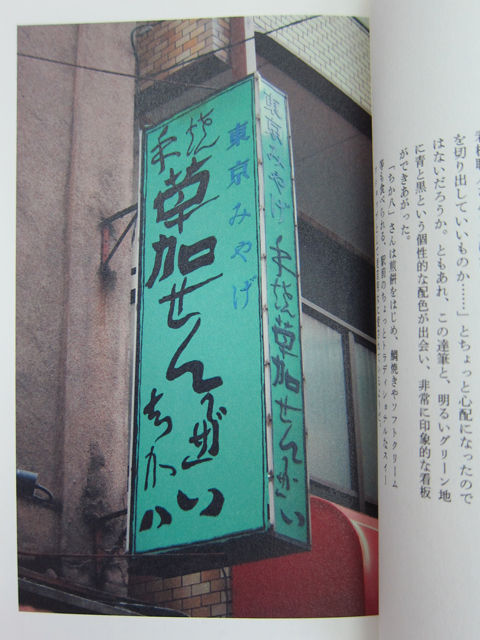 を切り出していいものか……」とちょっと心配になったので
はないだろうか。ともあれ、この達筆と、明るいグリーン地
に青と黒という個性的な配色が出会い、非常に印象的な看板
ができあがった。
「ちか八」さんは煎餅をはじめ、鯛焼きやソフトクリーム
等も食べられる、駅前のちょっとトラディショナルなスイー
東京みやげ
手焼
草加せんべい
ちか八
東京みやげ
手焼草加せんべい